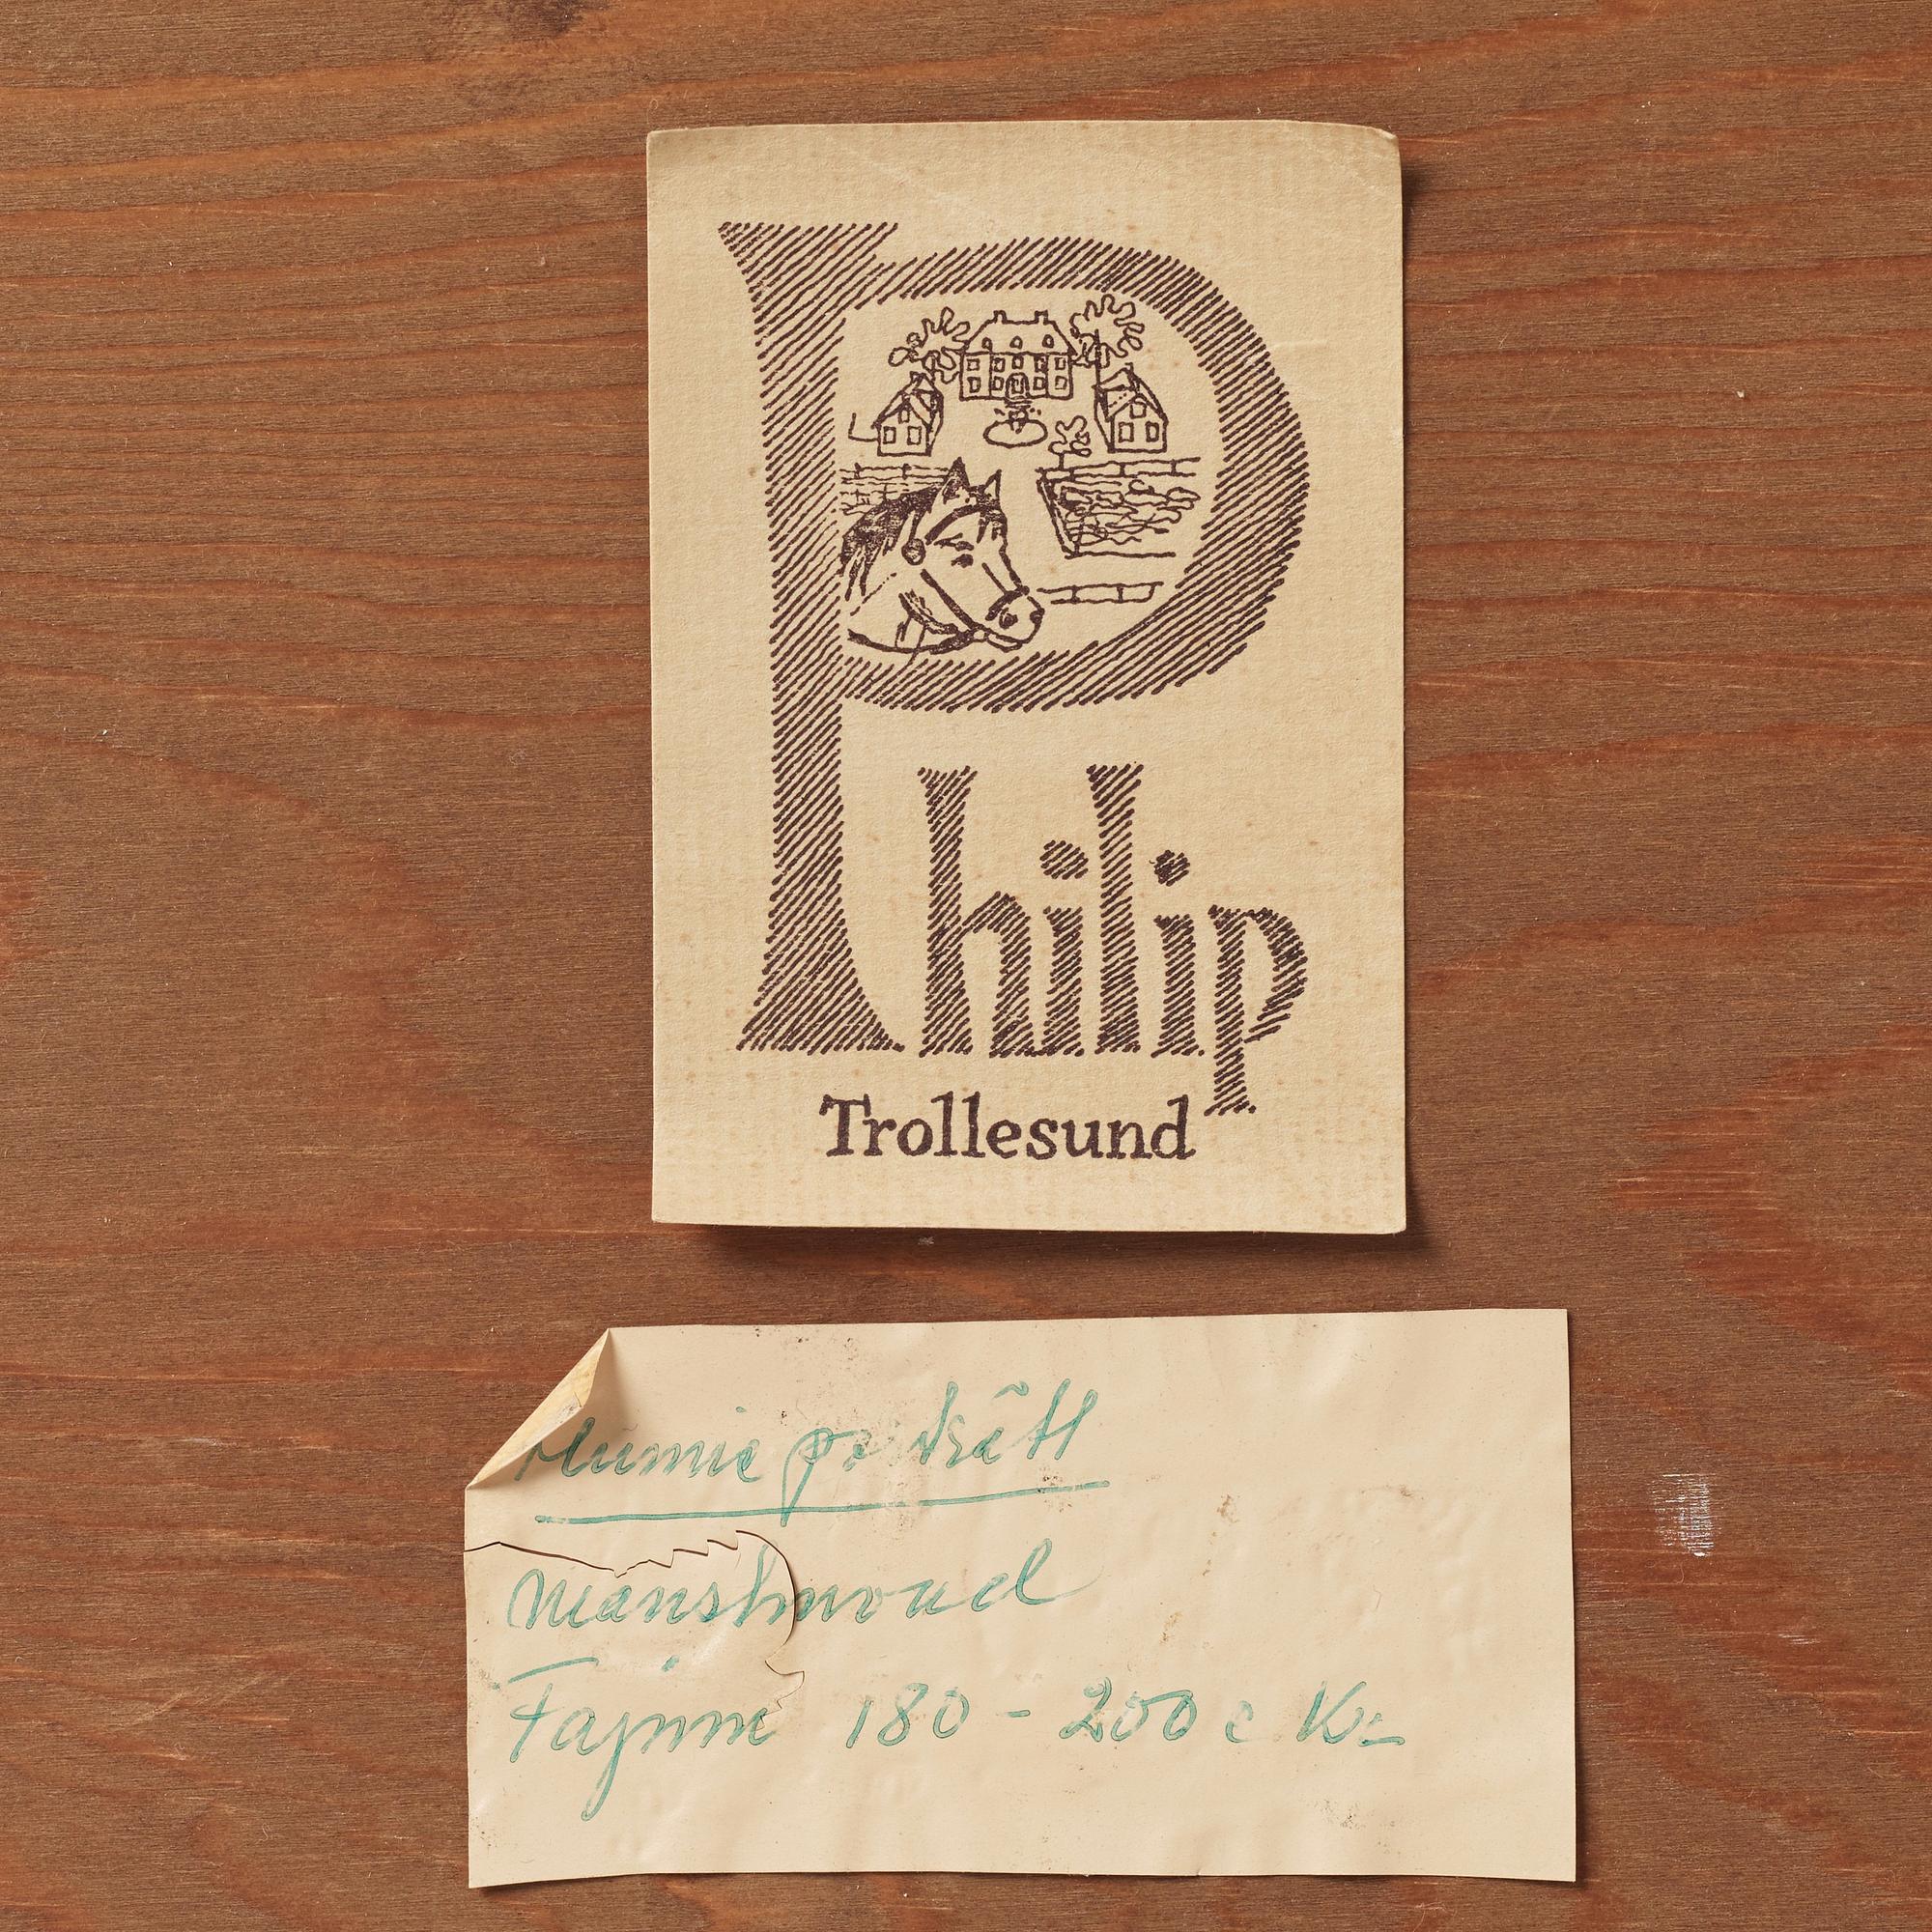 Philip
Trollesund
Mumie porträtt
Manshuvud
Fajum 180-200 e Kr.